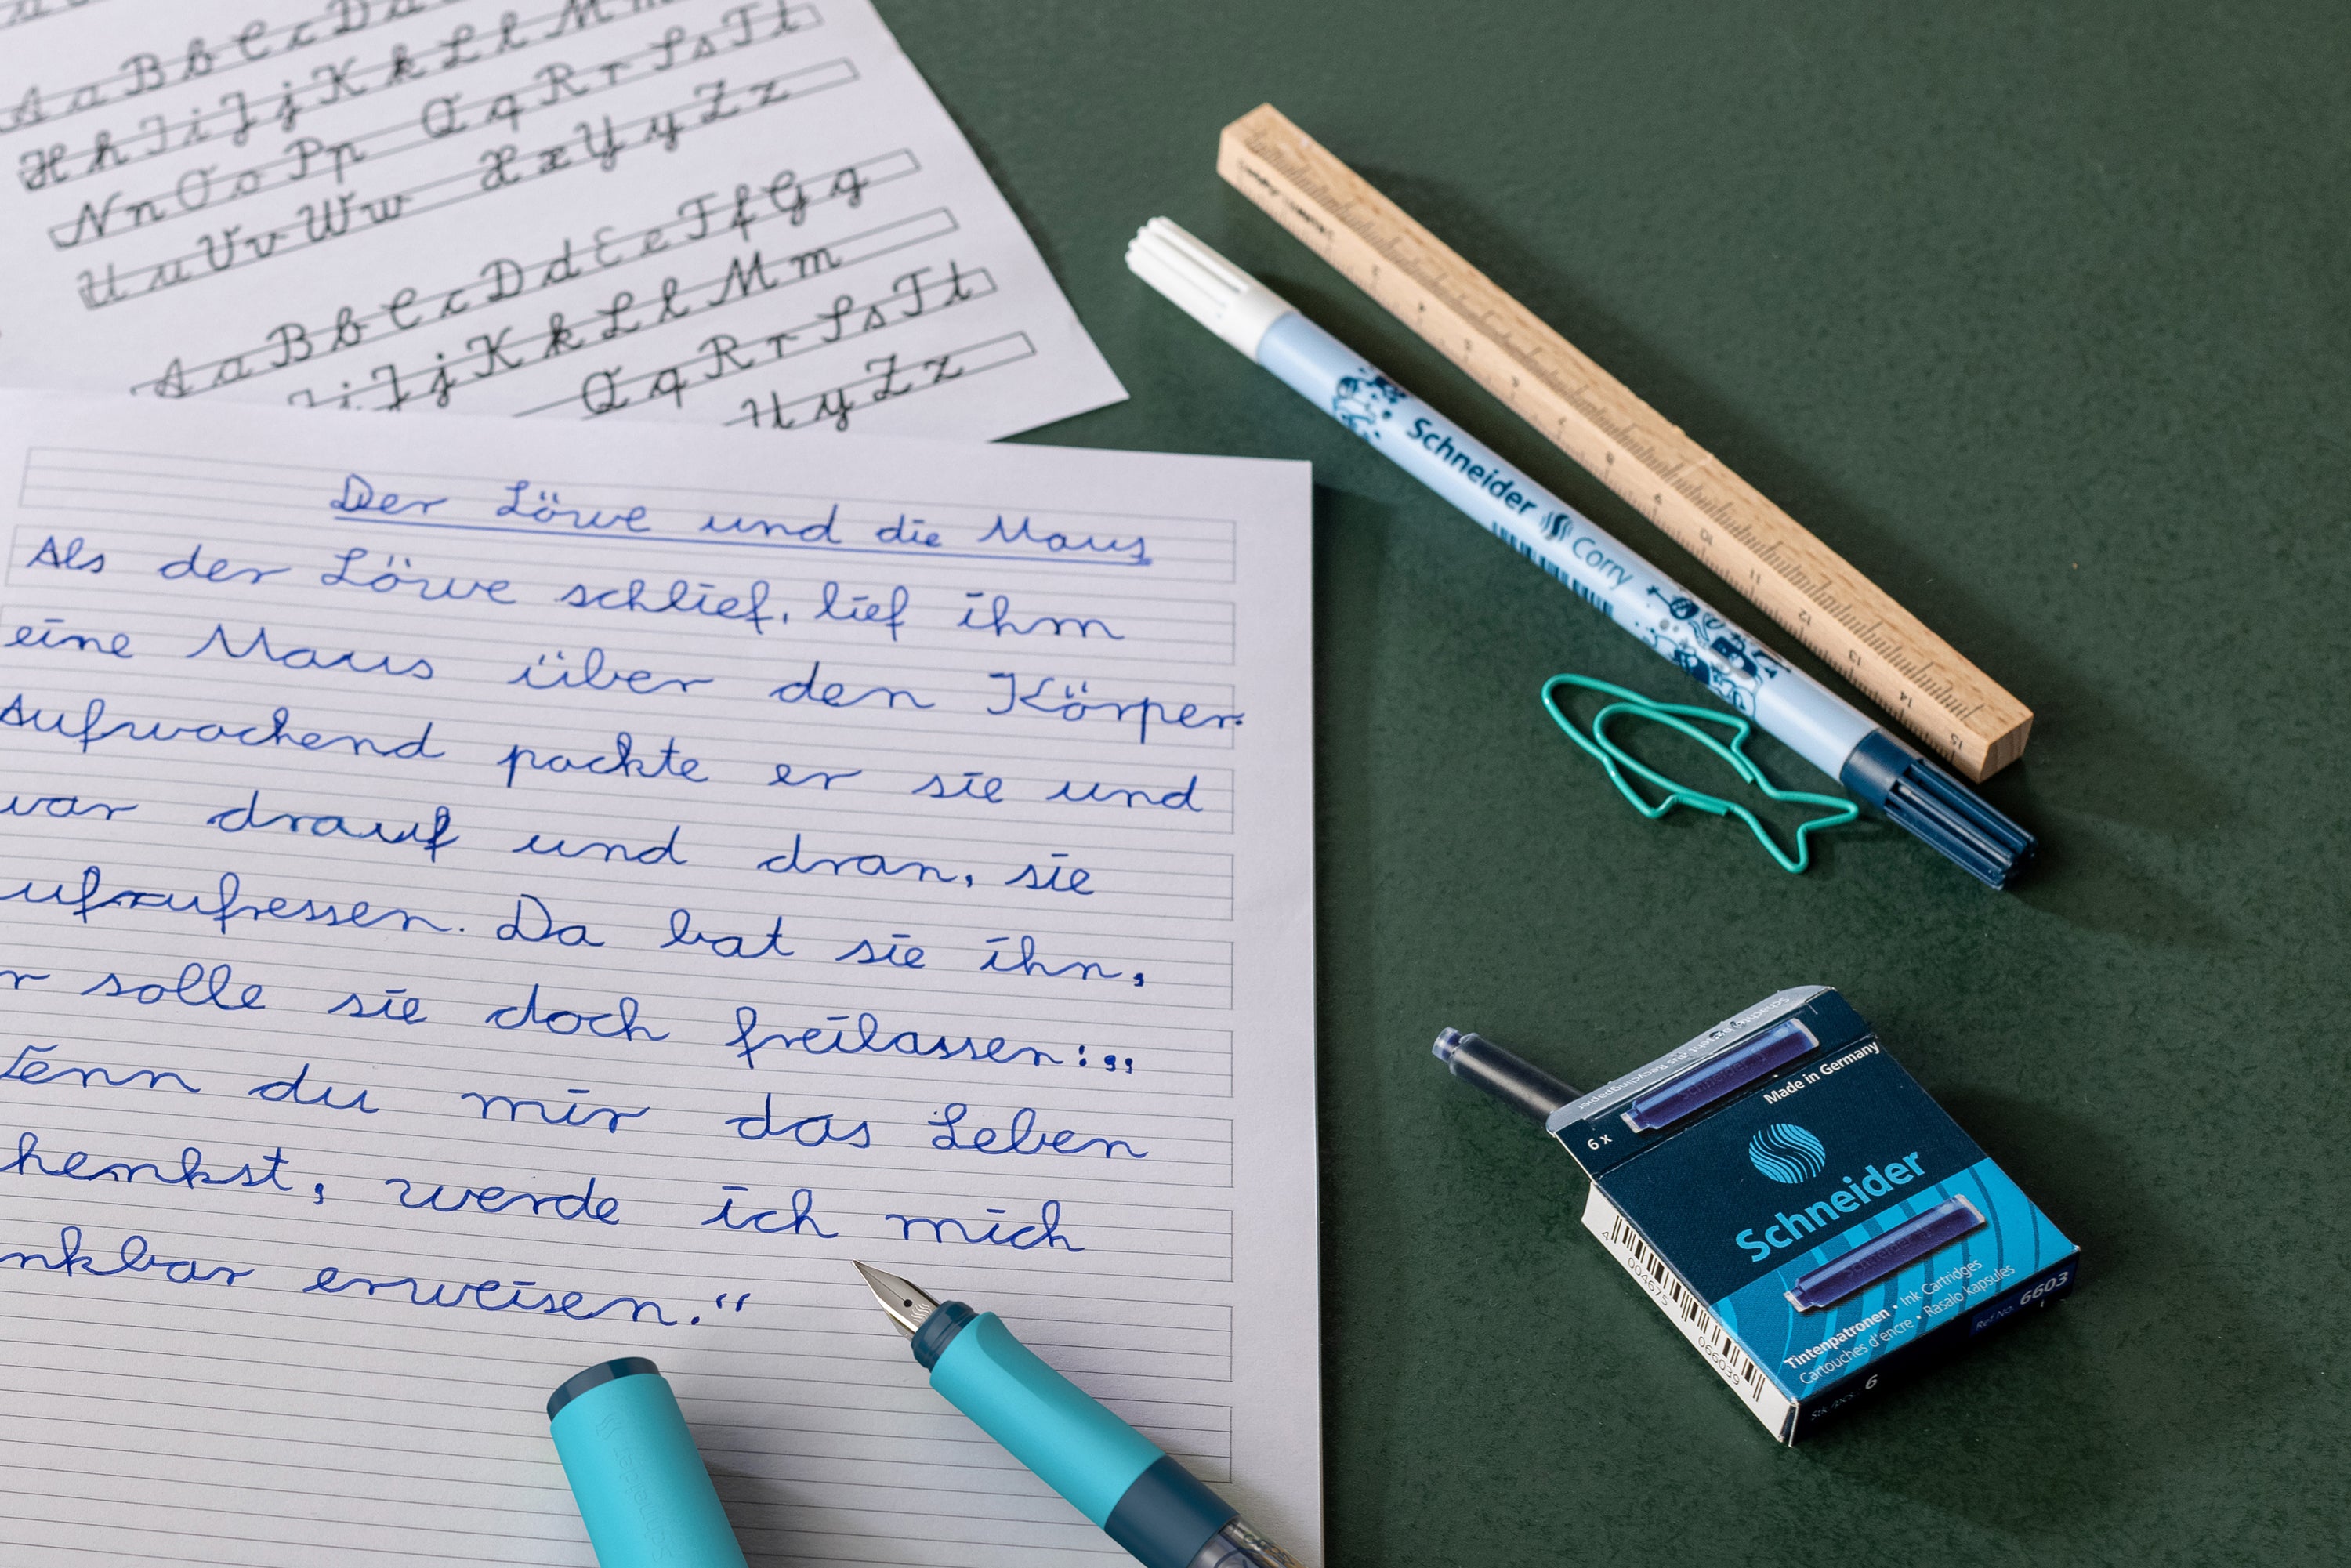 A a B b C c D d
H h I i J j K k L l M m
N n O o P p Q q R r S s T t
U u V v W w X x Y y Z z
A a B b C c D d E e F f G g
i J j K k L l M m
Q q R r S s T t
y Z z
Der Löwe und die Maus
Als der Löwe schlief, lief ihm
eine Maus über den Körper.
Aufwachend packte er sie und
war drauf und dran, sie
ufzufressen. Da bat sie ihn,
r solle sie doch freilassen: „
enn du mir das Leben
henkst, werde ich mich
nkbar erweisen.“
Schneider Corry
2
4
5
6
7
8
9
10
11
12
13
14
15
Made in Germany
6 x
Schneider
Tintenpatronen • Ink Cartridges
Cartouches d'encre • Rasalo kapsules
Ref. No. 6603
6
4 004675 066039